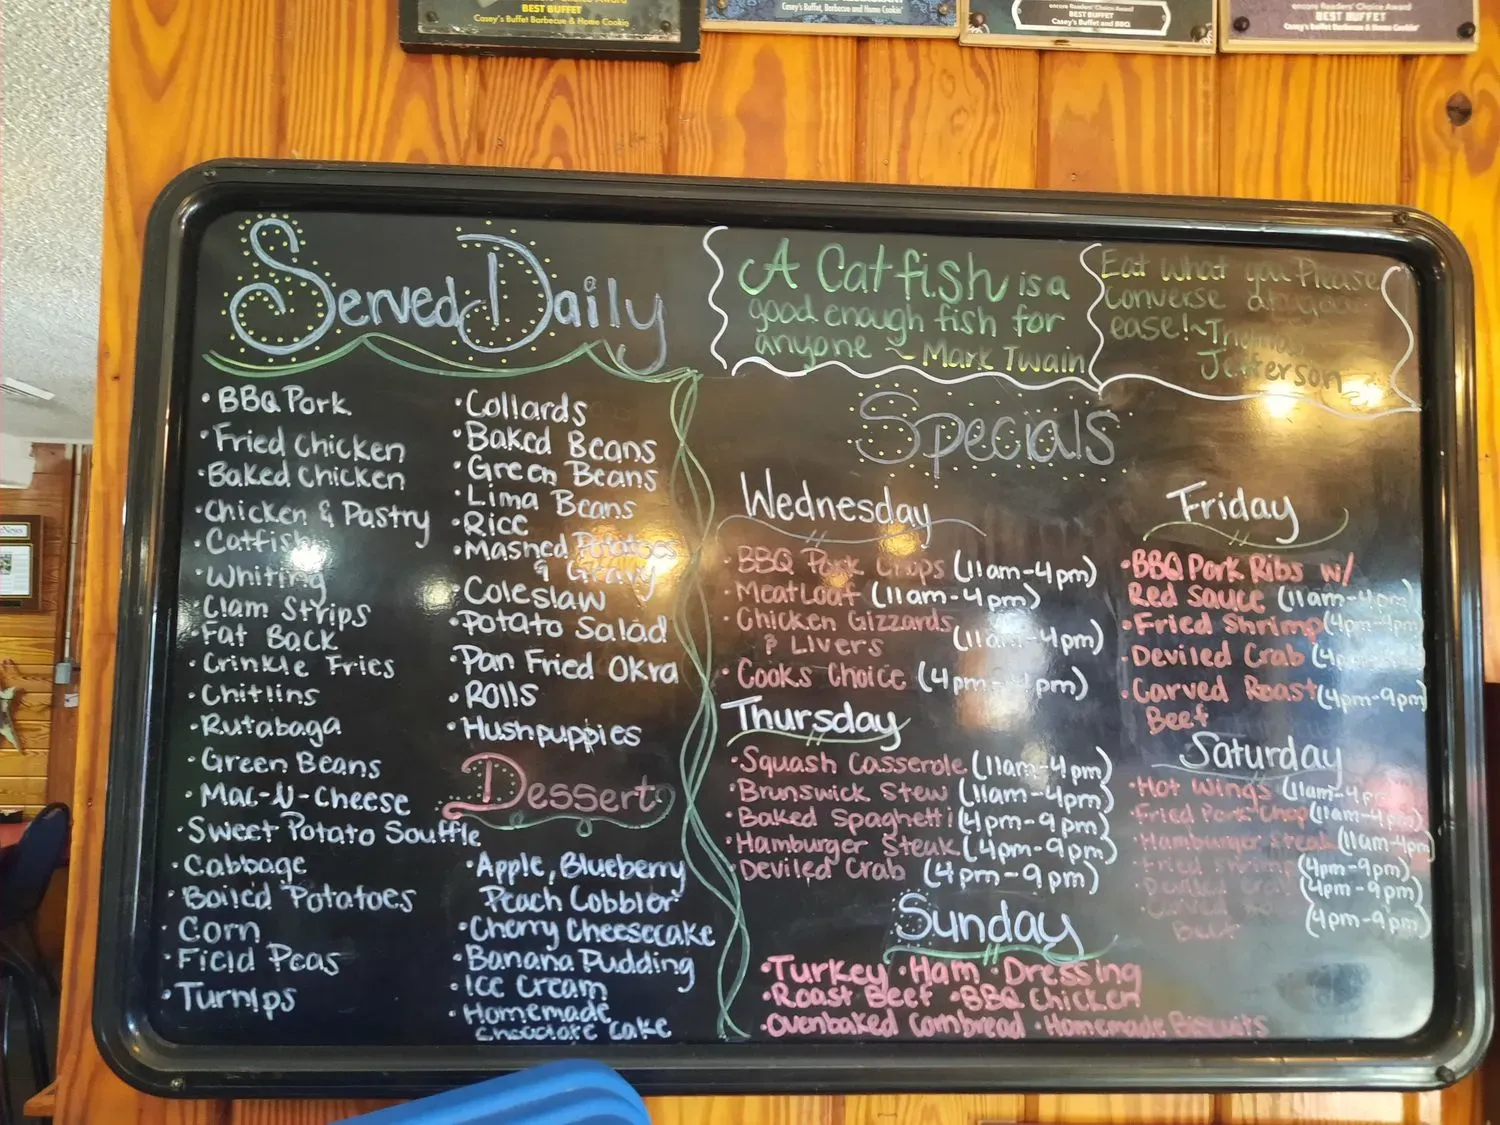 BEST BUFFET
Casey's Buffet Barbecue & Home Cookin
Casey's Buffet, Barbecue and Home Cookin'
encore Readers' Choice Award
BEST BUFFET
Casey's Buffet and BBQ
encore Readers' Choice Award
BEST BUFFET
Casey's Buffet Barbecue & Home Cookin'
Served Daily
• BBQ Pork
• Fried Chicken
• Baked Chicken
• Chicken & Pastry
• Catfish
• Whiting
• Clam Strips
• Fat Back
• Crinkle Fries
• Chitlins
• Rutabaga
• Green Beans
• Mac-N-Cheese
• Sweet Potato Souffle
• Cabbage
• Boiled Potatoes
• Corn
• Field Peas
• Turnips
• Collards
• Baked Beans
• Green Beans
• Lima Beans
• Rice
• Mashed Potatoes
& Gravy
• Coleslaw
• Potato Salad
• Pan Fried Okra
• Rolls
• Hushpuppies
Dessert
• Apple, Blueberry
Peach Cobbler
• Cherry Cheesecake
• Banana Pudding
• Ice Cream
• Homemade
Chocolate Cake
A Catfish is a
good enough fish for
anyone ~ Mark Twain
Eat what you Please
Converse
ease! ~ Thomas
Jefferson
Specials
Wednesday
• BBQ Pork Chops (11am-4pm)
• Meatloaf (11am-4pm)
• Chicken Gizzards
& Livers (11am-4pm)
• Cooks Choice (4pm- pm)
Thursday
• Squash Casserole (11am-4pm)
• Brunswick Stew (11am-4pm)
• Baked Spaghetti (4pm-9pm)
• Hamburger Steak (4pm-9pm)
• Deviled Crab (4pm-9pm)
Friday
• BBQ Pork Ribs w/
Red Sauce (11am-4pm)
• Fried Shrimp (4pm-9pm)
• Deviled Crab (4p
• Carved Roast (4pm-9pm)
Beef
Saturday
• Hot Wings (11am-4pm)
• Fried Pork Chop (11am-4pm)
• Hamburger Steak (11am-4pm)
• Fried Shrimp (4pm-9pm)
• Deviled Crab (4pm-9pm)
(4pm-9pm)
Beef
Sunday
• Turkey • Ham • Dressing
• Roast Beef • BBQ Chicken
• Ovenbaked Cornbread • Homemade Biscuits